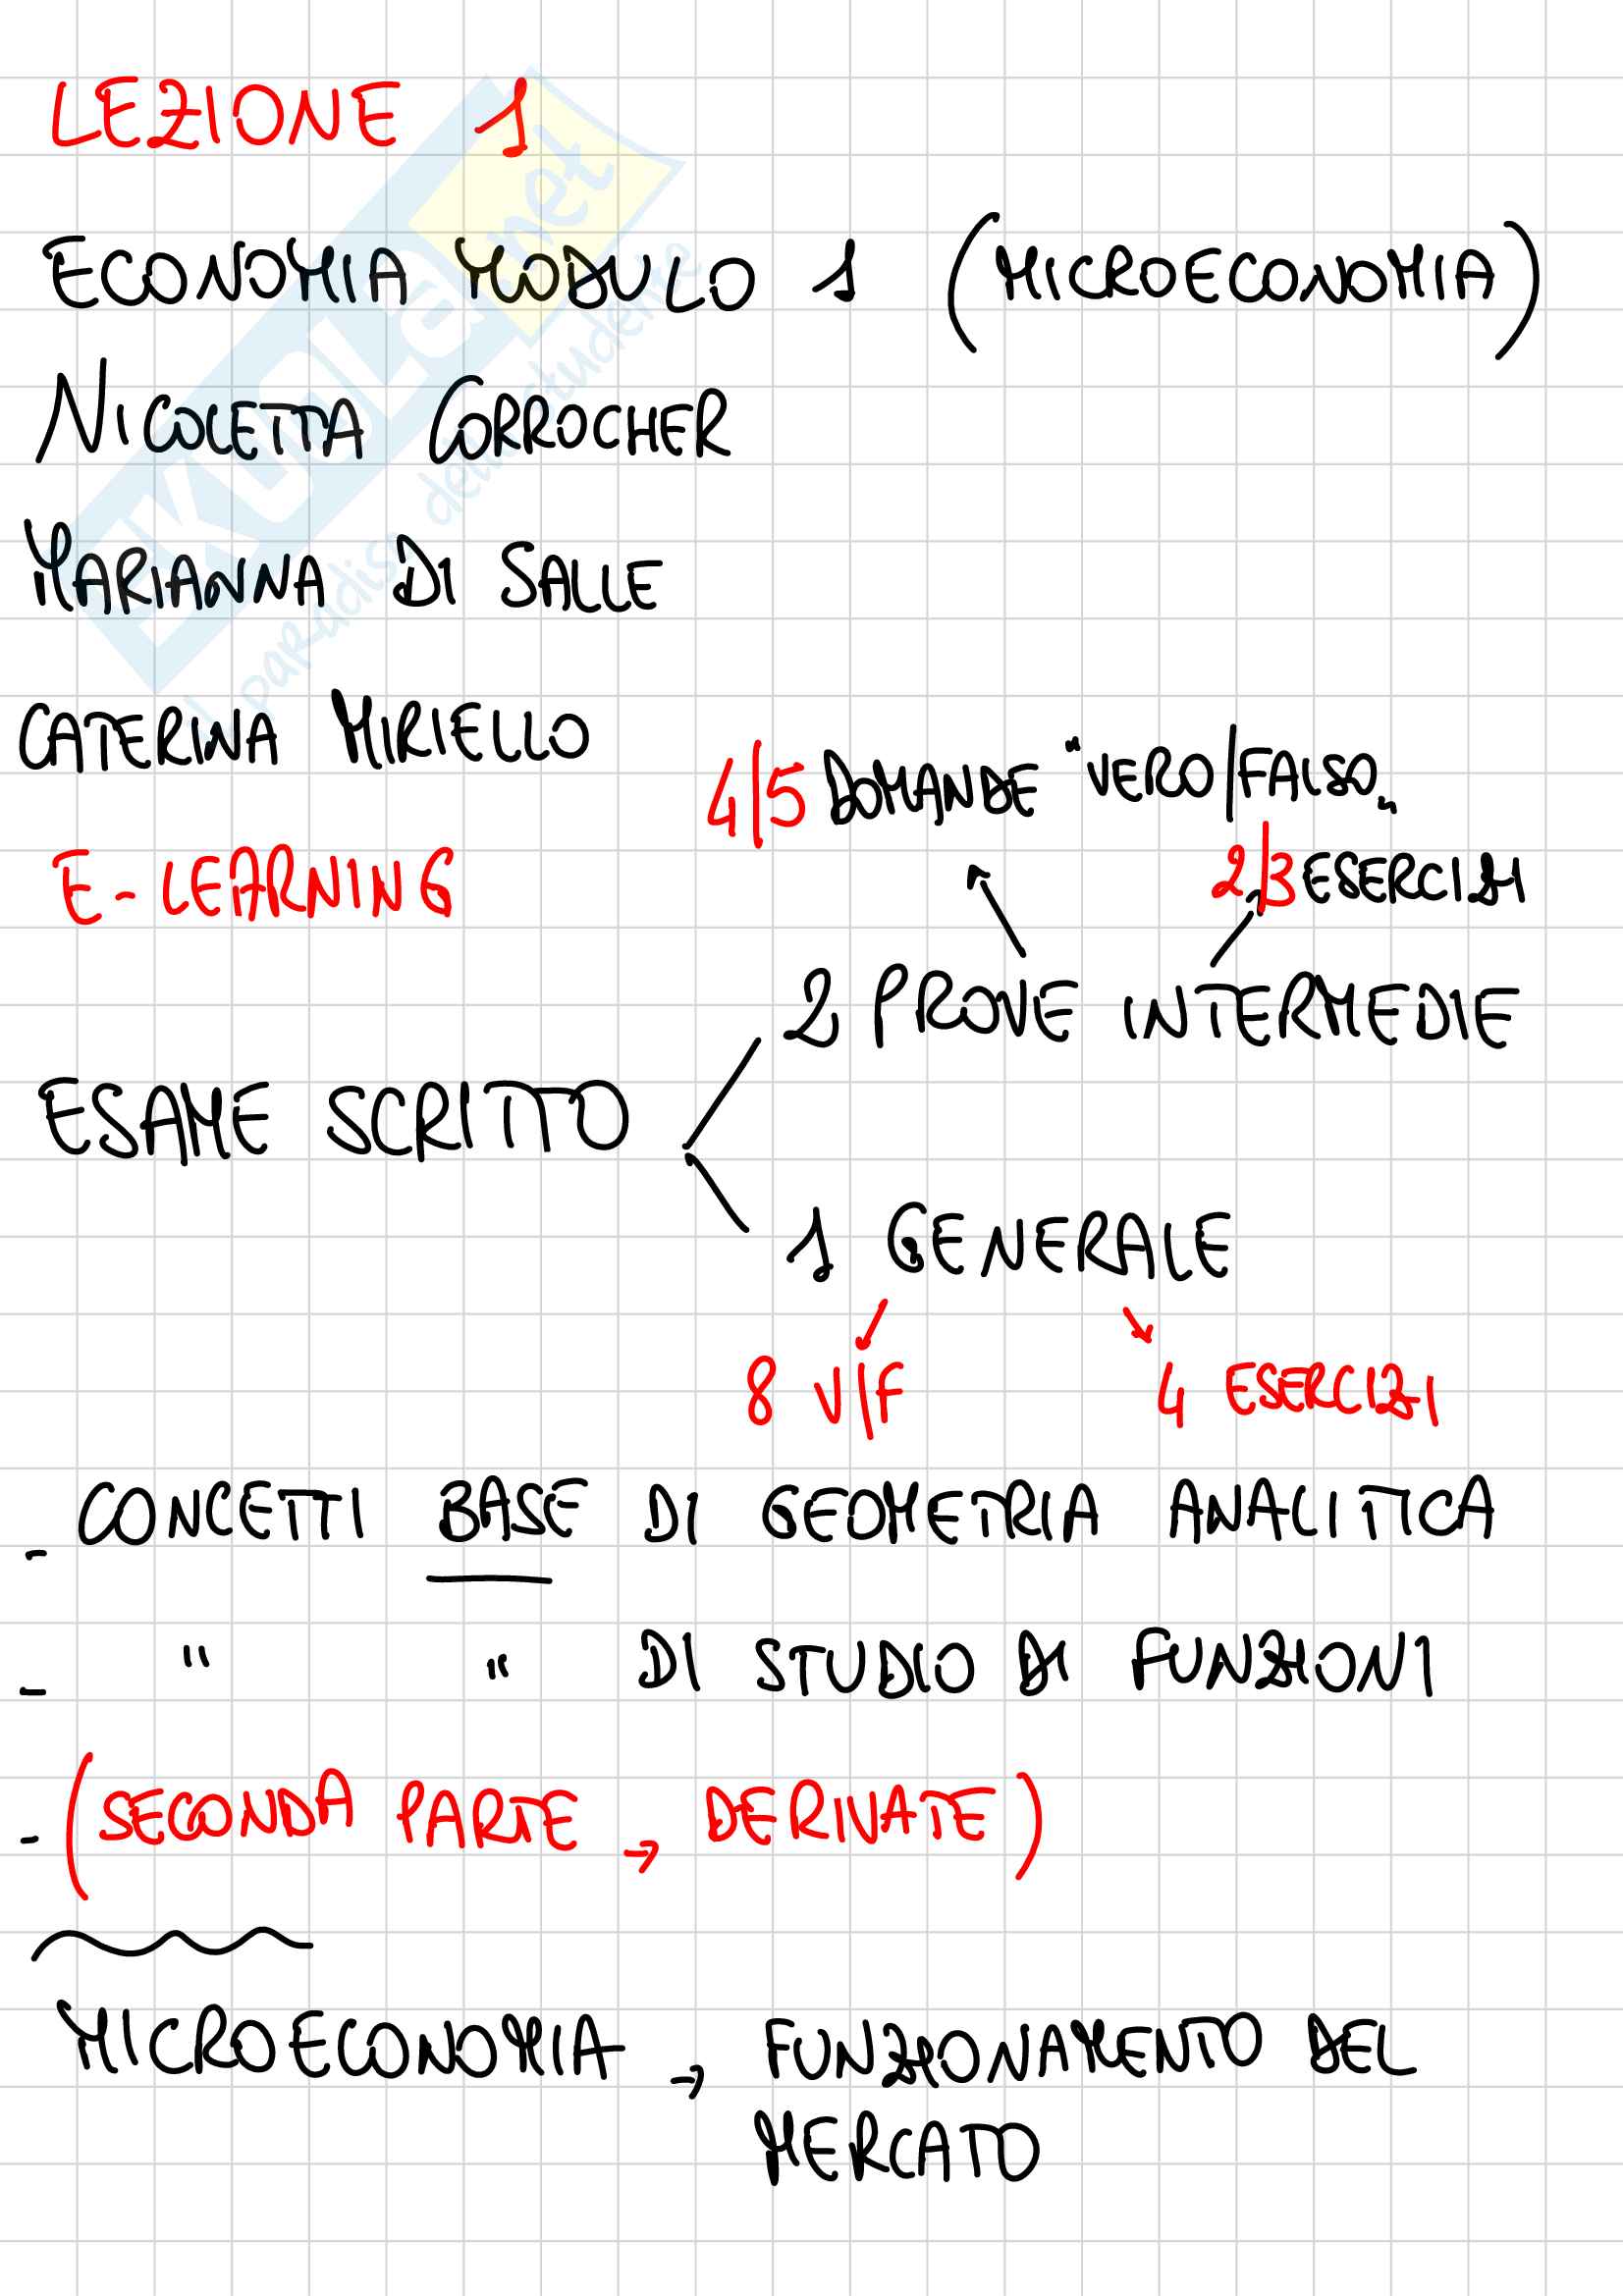 LEZIONE 1
ECONOMIA MODULO 1 (MICROECONOMIA)
NICOLETTA CORROCHER
MARIANNA DI SALLE
CATERINA MIRIELLO
4/5 DOMANDE "VERO/FALSO"
E-LEARNING
2/3 ESERCIZI
2 PROVE INTERMEDIE
ESAME SCRITTO
1 GENERALE
8 V/F
4 ESERCIZI
- CONCETTI BASE DI GEOMETRIA ANALITICA
- " " DI STUDIO DI FUNZIONI
- (SECONDA PARTE → DERIVATE)
MICROECONOMIA → FUNZIONAMENTO DEL
MERCATO
SKUOLA.net
il paradiso dello studente